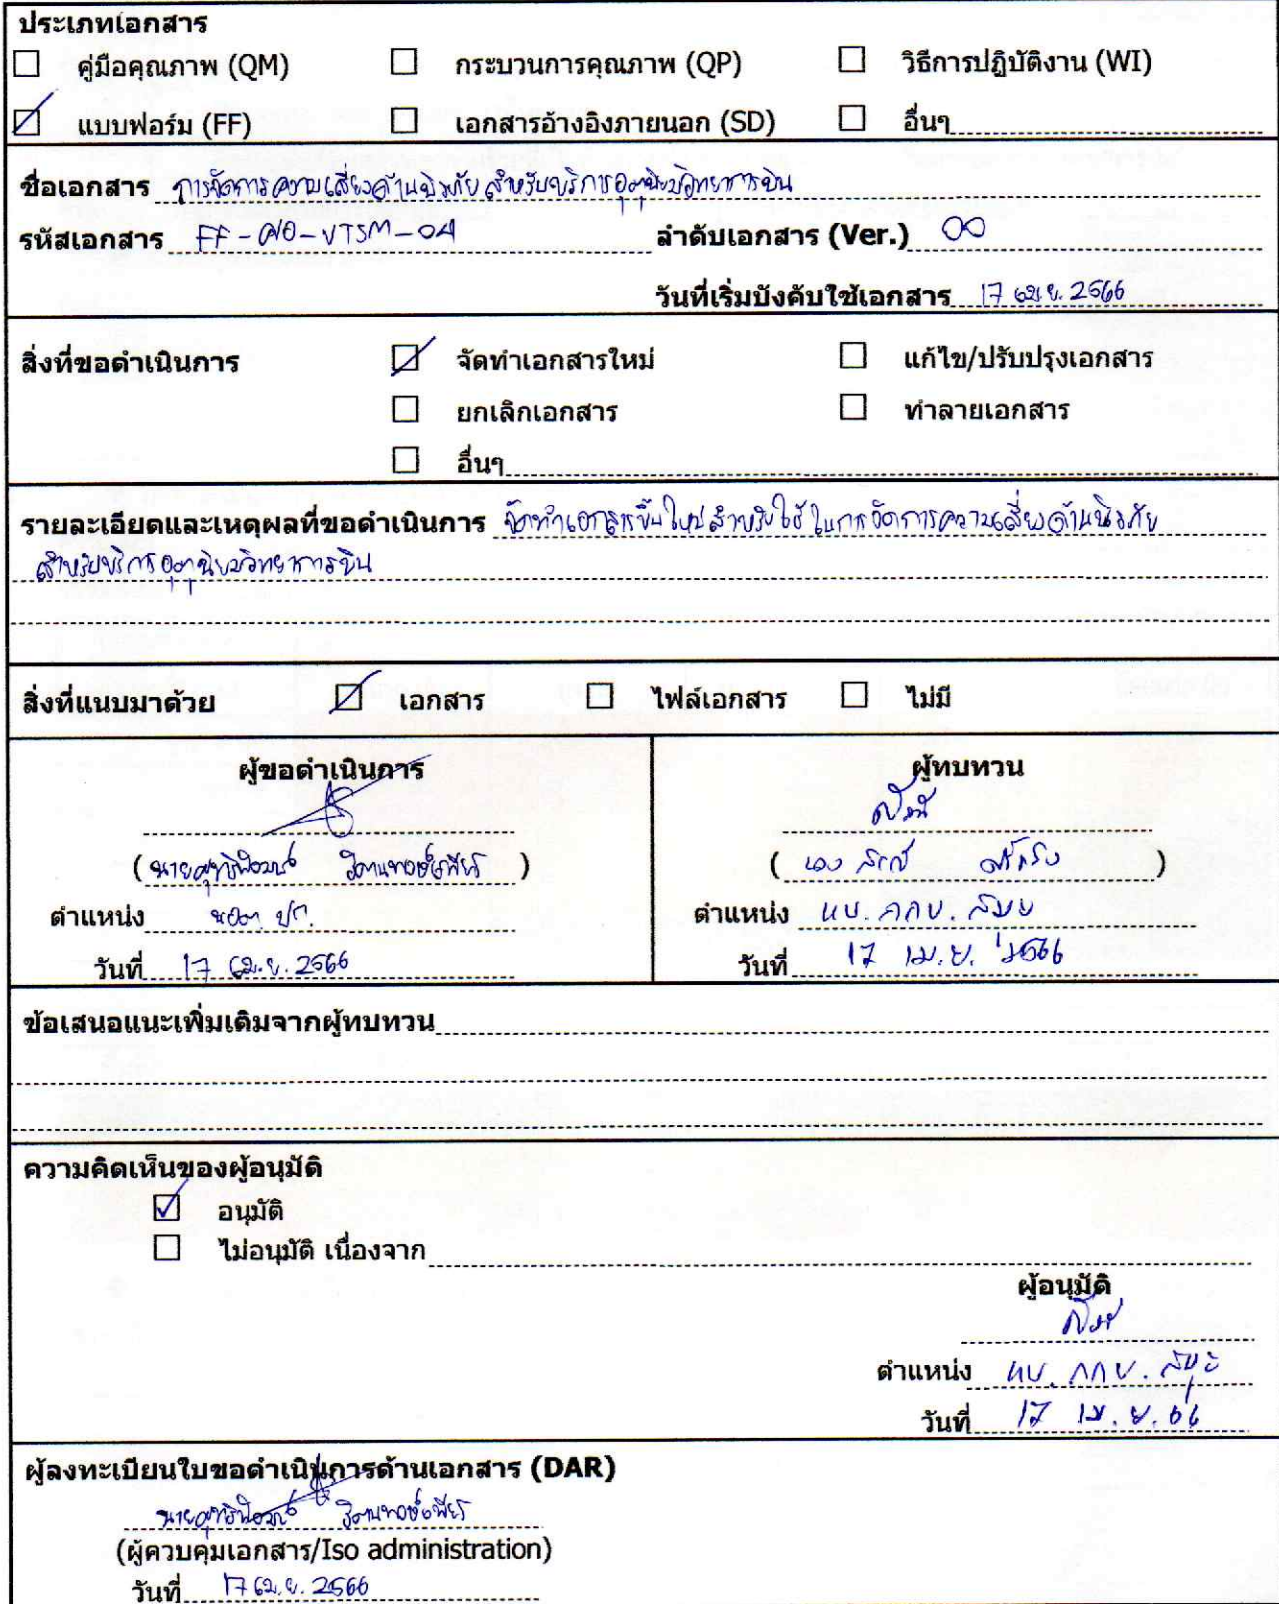 ประเภทเอกสาร
คู่มือคุณภาพ (QM) กระบวนการคุณภาพ (QP) วิธีการปฏิบัติงาน (WI)
แบบฟอร์ม (FF) เอกสารอ้างอิงภายนอก (SD) อื่นๆ
ชื่อเอกสาร การจัดการความเสี่ยงด้านนิรภัย สำหรับบริการอุตุนิยมวิทยาการบิน
รหัสเอกสาร FF-พอ-VTSM-04 ลำดับเอกสาร (Ver.) 00
วันที่เริ่มบังคับใช้เอกสาร 17 เม.ย. 2566
สิ่งที่ขอดำเนินการ จัดทำเอกสารใหม่ แก้ไข/ปรับปรุงเอกสาร
ยกเลิกเอกสาร ทำลายเอกสาร
อื่นๆ
รายละเอียดและเหตุผลที่ขอดำเนินการ จัดทำเอกสารขึ้นใหม่สำหรับใช้ในการจัดการความเสี่ยงด้านนิรภัย
สำหรับบริการอุตุนิยมวิทยาการบิน
สิ่งที่แนบมาด้วย เอกสาร ไฟล์เอกสาร ไม่มี
ผู้ขอดำเนินการ ผู้ทบทวน
( นาย ) ( นาง )
ตำแหน่ง ตำแหน่ง
วันที่ 17 เม.ย. 2566 วันที่ 17 เม.ย. 2566
ข้อเสนอแนะเพิ่มเติมจากผู้ทบทวน
ความคิดเห็นของผู้อนุมัติ
อนุมัติ
ไม่อนุมัติ เนื่องจาก
ผู้อนุมัติ
ตำแหน่ง
วันที่ 17 เม.ย. 66
ผู้ลงทะเบียนใบขอดำเนินการด้านเอกสาร (DAR)
นาย
(ผู้ควบคุมเอกสาร/Iso administration)
วันที่ 17 เม.ย. 2566